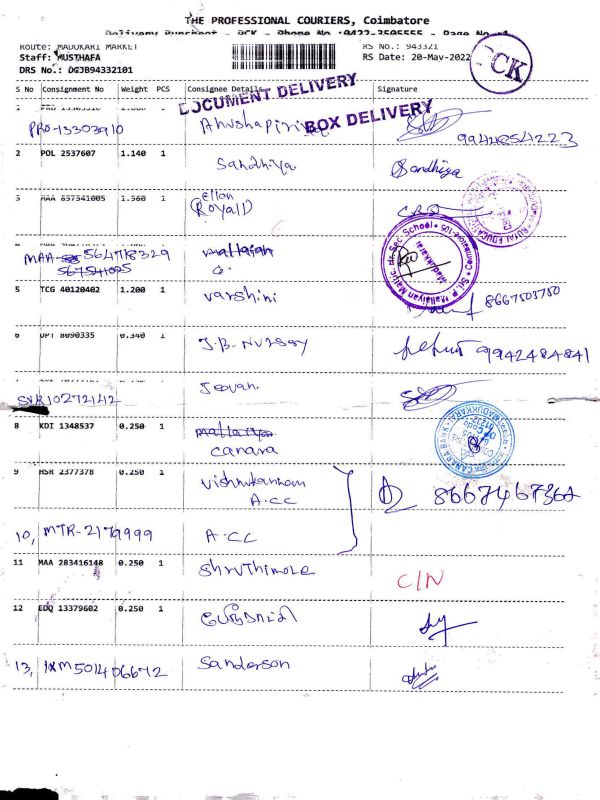 THE PROFESSIONAL COURIERS, Coimbatore
Delivery Runsheet - PCK - Phone No :0422-3505555 - Page No :1
Route: MADUKARI MARKET
RS No.: 943321
Staff: MUSTHAFA
RS Date: 20-May-2022
PCK
DRS No.: DGJB94332101
S No Consignment No Weight PCS Consignee Details Signature
DOCUMENT DELIVERY
BOX DELIVERY
1
PRO-13303910
9944854223
2 POL 2537607 1.140 1 Sandhiya Sandhiya
3 MAA 857541005 1.560 1 Ellon
(Royal)
MAA 564718329
567541005
mallaian
C.
Sri. P. Mallaiyan Matric Hr. Sec. School Coimbatore-105
Madukkarai
5 TCG 40120402 1.200 1 Varshini 8667503750
6 OPT 8090335 0.340 1 J.B- Nursery 9942484841
Jeevan
SVK10272142
8 KDI 1348537 0.250 1 mallaiya
canara
CANARA BANK MADUKKARAI
9 HSR 2377378 0.250 1 Vishnukannam
A.CC
8667467362
10, MTR-2179999 A.CC
11 MAA 283416148 0.250 1 Shruthimole C/N
12 EDQ 13379602 0.250 1
13, IXM501406672 Sanderson